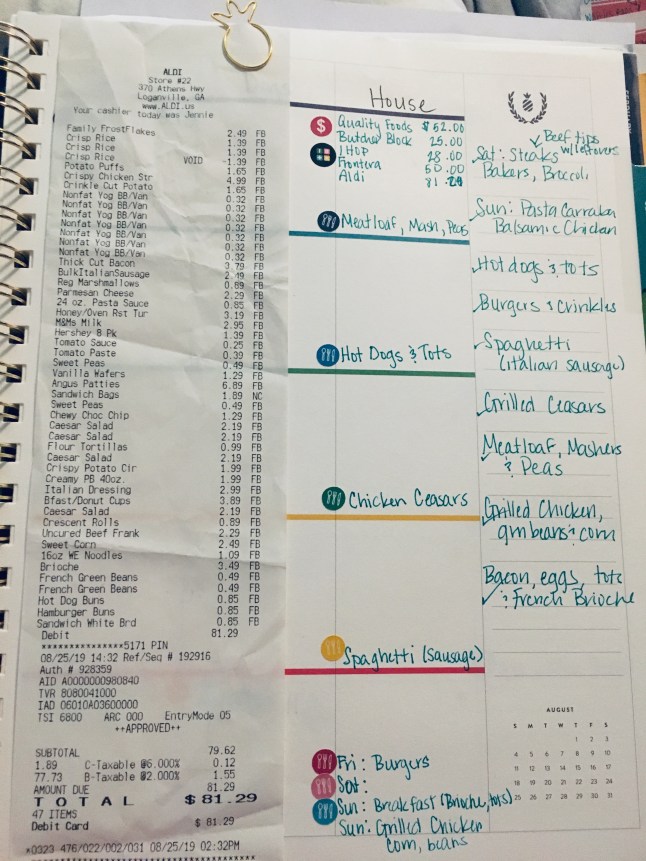 ALDI
Store #22
370 Athens Hwy
Loganville, GA
www.ALDI.us
Your cashier today was Jennie
Family FrostFlakes 2.49 FB
Crisp Rice 1.39 FB
Crisp Rice 1.39 FB
Crisp Rice VOID -1.39 FB
Potato Puffs 1.65 FB
Crispy Chicken Str 4.99 FB
Crinkle Cut Potato 1.65 FB
Nonfat Yog BB/Van 0.32 FB
Nonfat Yog BB/Van 0.32 FB
Nonfat Yog BB/Van 0.32 FB
Nonfat Yog BB/Van 0.32 FB
Nonfat Yog BB/Van 0.32 FB
Nonfat Yog BB/Van 0.32 FB
Nonfat Yog BB/Van 0.32 FB
Thick Cut Bacon 3.79 FB
BulkItalianSausage 2.49 FB
Reg Marshmallows 0.89 FB
Parmesan Cheese 2.29 FB
24 oz. Pasta Sauce 0.85 FB
Honey/Oven Rst Tur 3.19 FB
M&Ms Milk 2.95 FB
Hershey 8 Pk 1.39 FB
Tomato Sauce 0.25 FB
Tomato Paste 0.39 FB
Sweet Peas 0.49 FB
Vanilla Wafers 1.29 FB
Angus Patties 6.89 FB
Sandwich Bags 1.89 NC
Sweet Peas 0.49 FB
Chewy Choc Chip 1.29 FB
Caesar Salad 2.19 FB
Caesar Salad 2.19 FB
Flour Tortillas 0.99 FB
Caesar Salad 2.19 FB
Crispy Potato Cir 1.99 FB
Creamy PB 40oz. 1.99 FB
Italian Dressing 2.99 FB
Bfast/Donut Cups 3.89 FB
Caesar Salad 2.19 FB
Crescent Rolls 0.89 FB
Uncured Beef Frank 2.29 FB
Sweet Corn 2.49 FB
16oz WE Noodles 1.09 FB
Brioche 3.49 FB
French Green Beans 0.49 FB
French Green Beans 0.49 FB
Hot Dog Buns 0.85 FB
Hamburger Buns 0.85 FB
Sandwich White Brd 0.85 FB
Debit 81.29
***************5171 PIN
08/25/19 14:32 Ref/Seq # 192916
Auth # 928359
AID A0000000980840
TVR 8080041000
IAD 06010A03600000
TSI 6800 ARC 000 EntryMode 05
++APPROVED++
SUBTOTAL 79.62
1.89 C-Taxable @6.000% 0.12
77.73 B-Taxable @2.000% 1.55
AMOUNT DUE 81.29
TOTAL $81.29
47 ITEMS
Debit Card $ 81.29
*0323 476/022/002/031 08/25/19 02:32PM
House
$
Quality Foods $52.00
Butcher Block 25.00
IHOP 28.00
Frontera 50.00
Aldi 81.29
Meatloaf, Mash, Peas
Hot Dogs & Tots
Chicken Ceasars
Spaghetti (Sausage)
Fri: Burgers
Sat:
Sun: Breakfast (Brioche, tots)
Sun: Grilled Chicken
corn, beans
Beef tips
w/leftovers
Sat: Steaks
Bakers, Broccoli
Sun: Pasta Carraba
Balsamic Chicken
Hot dogs & tots
Burgers & Crinkles
Spaghetti
(italian sausage)
Grilled Ceasars
Meatloaf, Mashers
& Peas
Grilled Chicken,
grnbeans & corn
Bacon, eggs, tots
& French Brioche
AUGUST
S M T W T F S
1 2 3
4 5 6 7 8 9 10
11 12 13 14 15 16 17
18 19 20 21 22 23 24
25 26 27 28 29 30 31